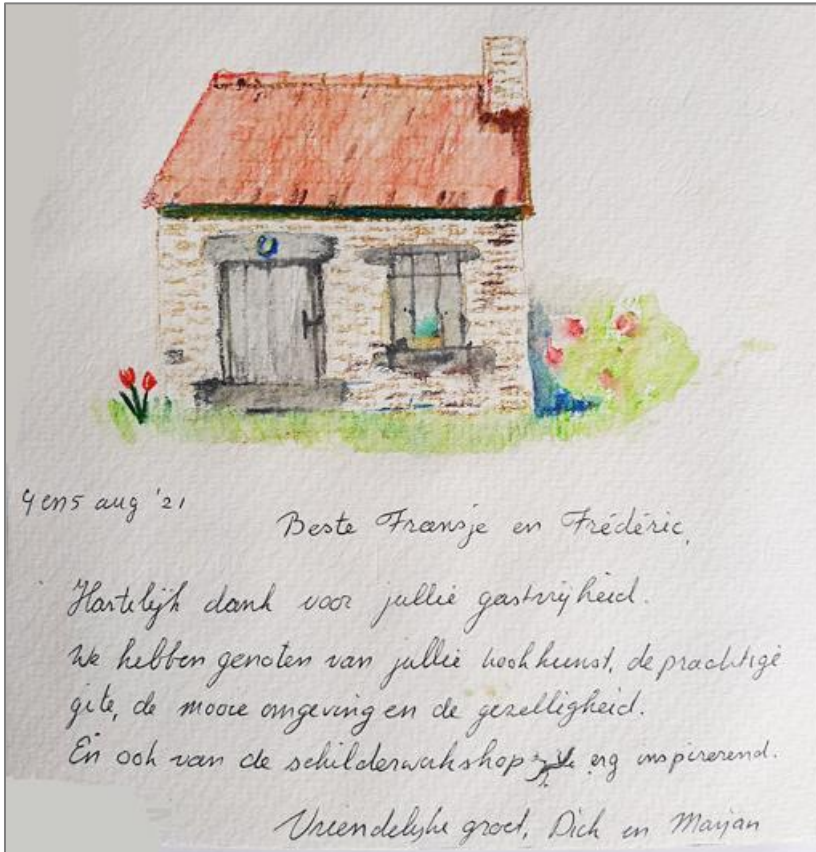 4 en 5 aug '21
Beste Fransje en Frédéric,
Hartelijk dank voor jullie gastvrijheid.
We hebben genoten van jullie kookkunst, de prachtige
gite, de mooie omgeving en de gezelligheid.
En ook van de schilderworkshop erg inspirerend.
Vriendelijke groet, Dick en Marjan